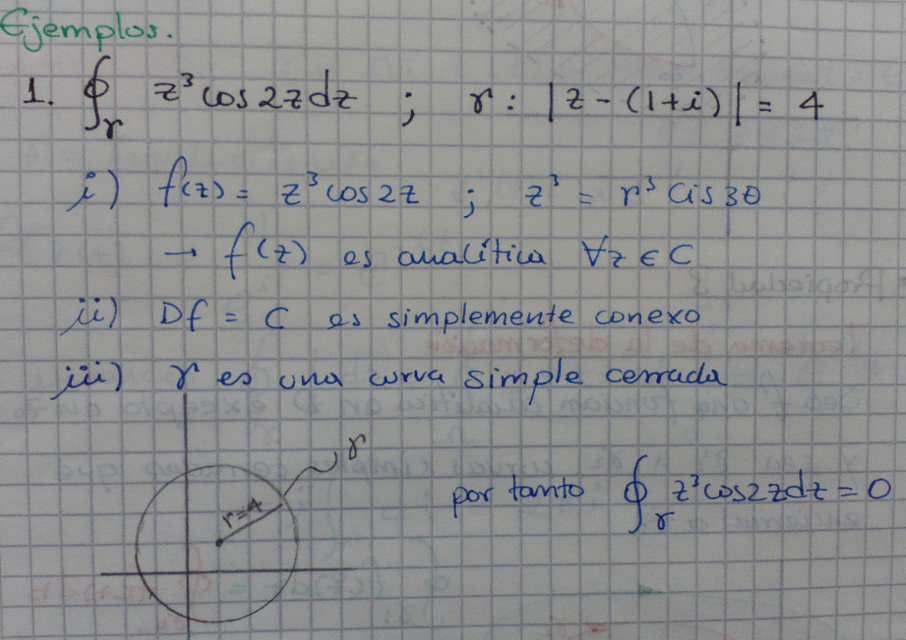 Ejemplos.
1. ∮γ z³ cos 2z dz ; γ : |z - (1+i)| = 4
i) f(z) = z³ cos 2z ; z³ = r³ Cis 3θ
→ f(z) es analítica ∀z ∈ C
ii) Df = C es simplemente conexo
iii) γ es una curva simple cerrada
γ
r=4
por tanto ∮γ z³ cos 2z dz = 0